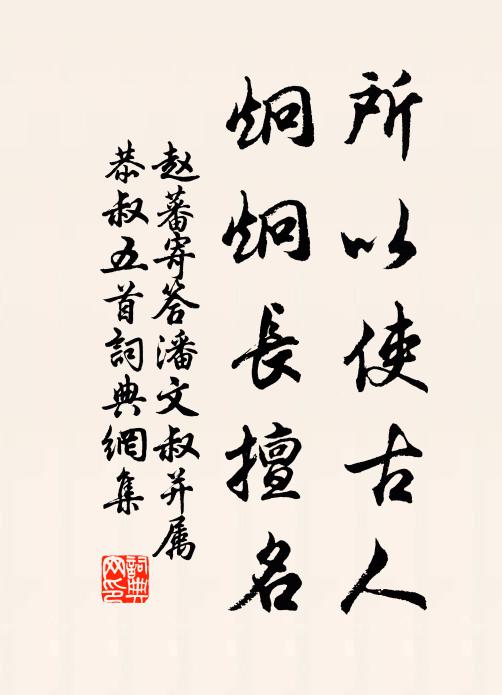 所以使古人
炯炯長擅名
赵蕃寄答潘文叔并属
恭叔五首詞典網集
詞典网印